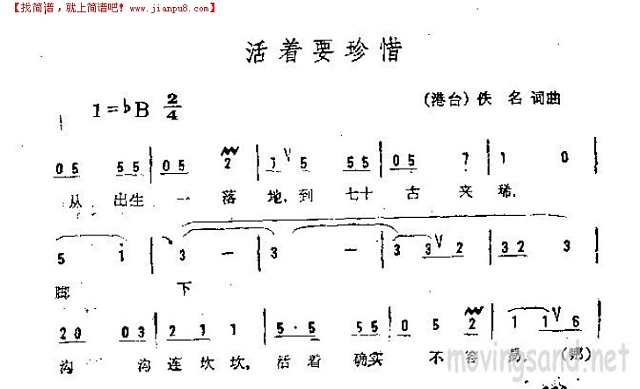 【找简谱，就上简谱吧! www.jianpu8.com】
活着要珍惜
1=♭B 2/4
(港台) 佚 名 词曲
0 5 5 5 | 0 5 2 | 1 V 5 5 5 | 0 5 7 | 1 0 |
从 出生 一 落 地, 到 七十 古 来 稀,
5 i | 3 - | 3 - | 3 3 V 2 | 3 2 3 |
脚 下
2 0 0 3 | 2 1 1 | 5 · 5 5 5 | 0 5 2 | 1 1 V 6 |
沟 沟 连 坎坎, 活 着 确实 不 容 易. (哪)
movingsand.net